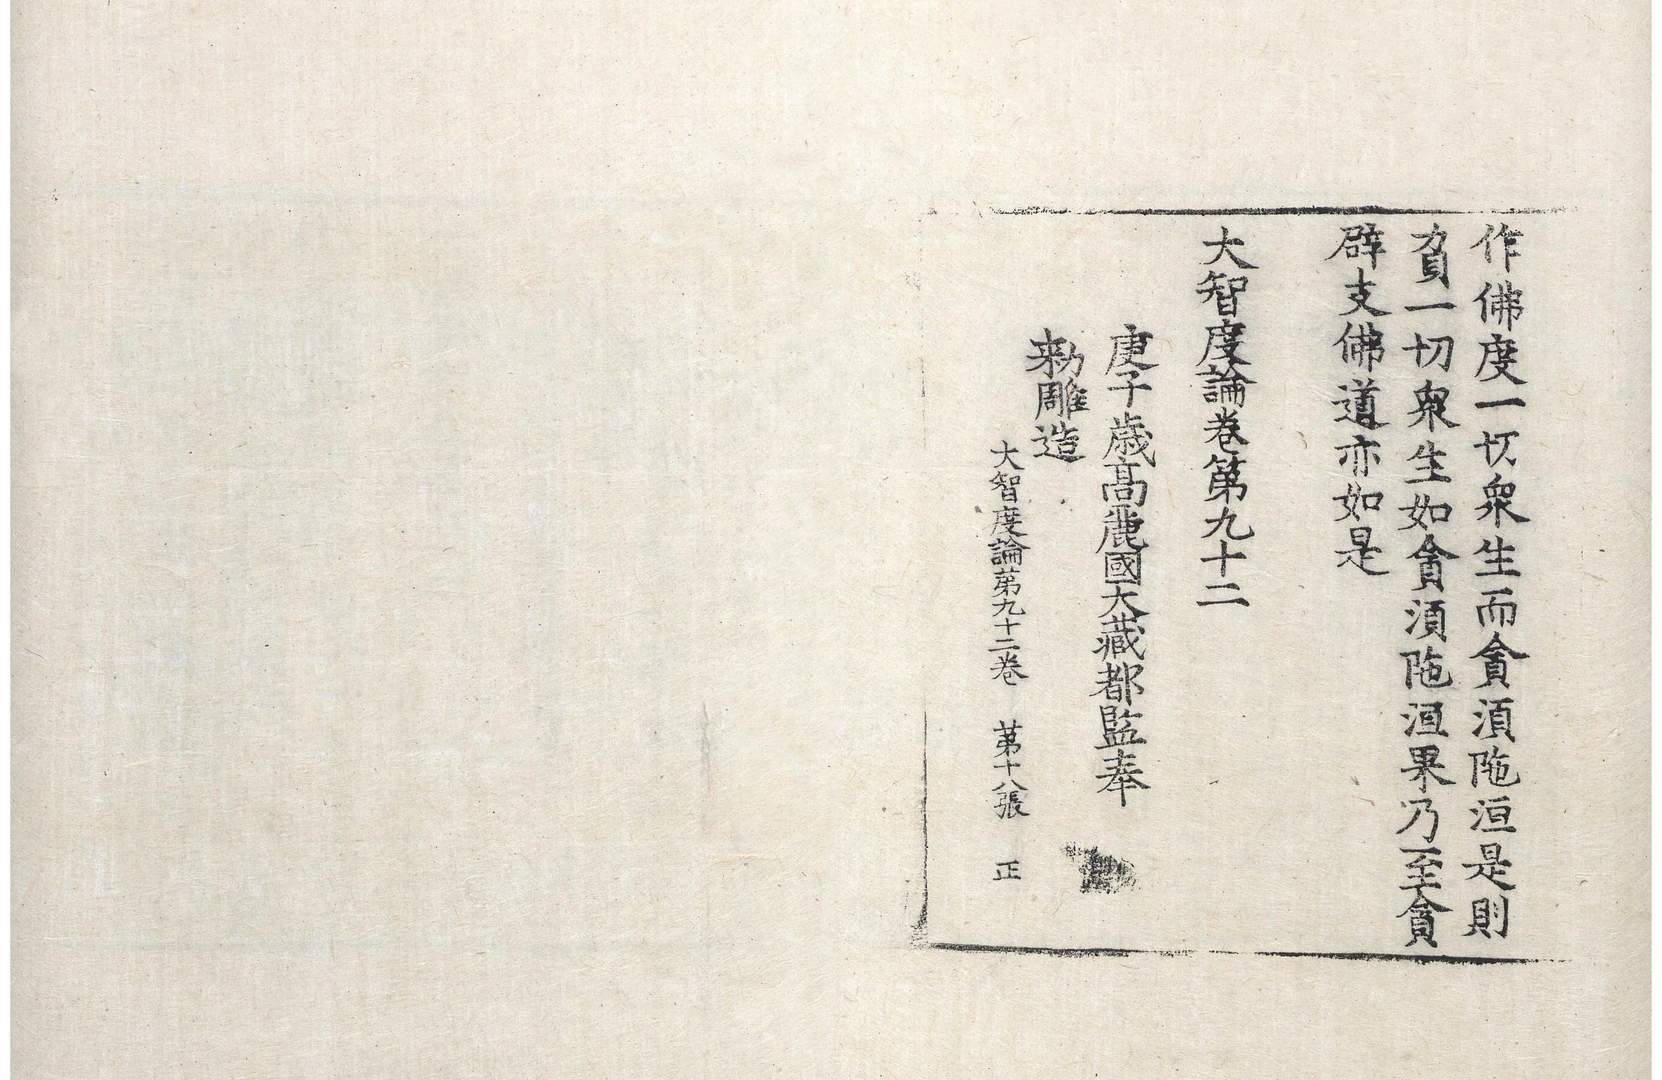 作佛度一切衆生而貪湏陁洹是則
負一切衆生如貪湏陁洹果乃至貪
辟支佛道亦如是
大智度論卷第九十二
庚子歳髙麗國大藏都監奉
勑雕造
大智度論第九十二卷 第十八張 正